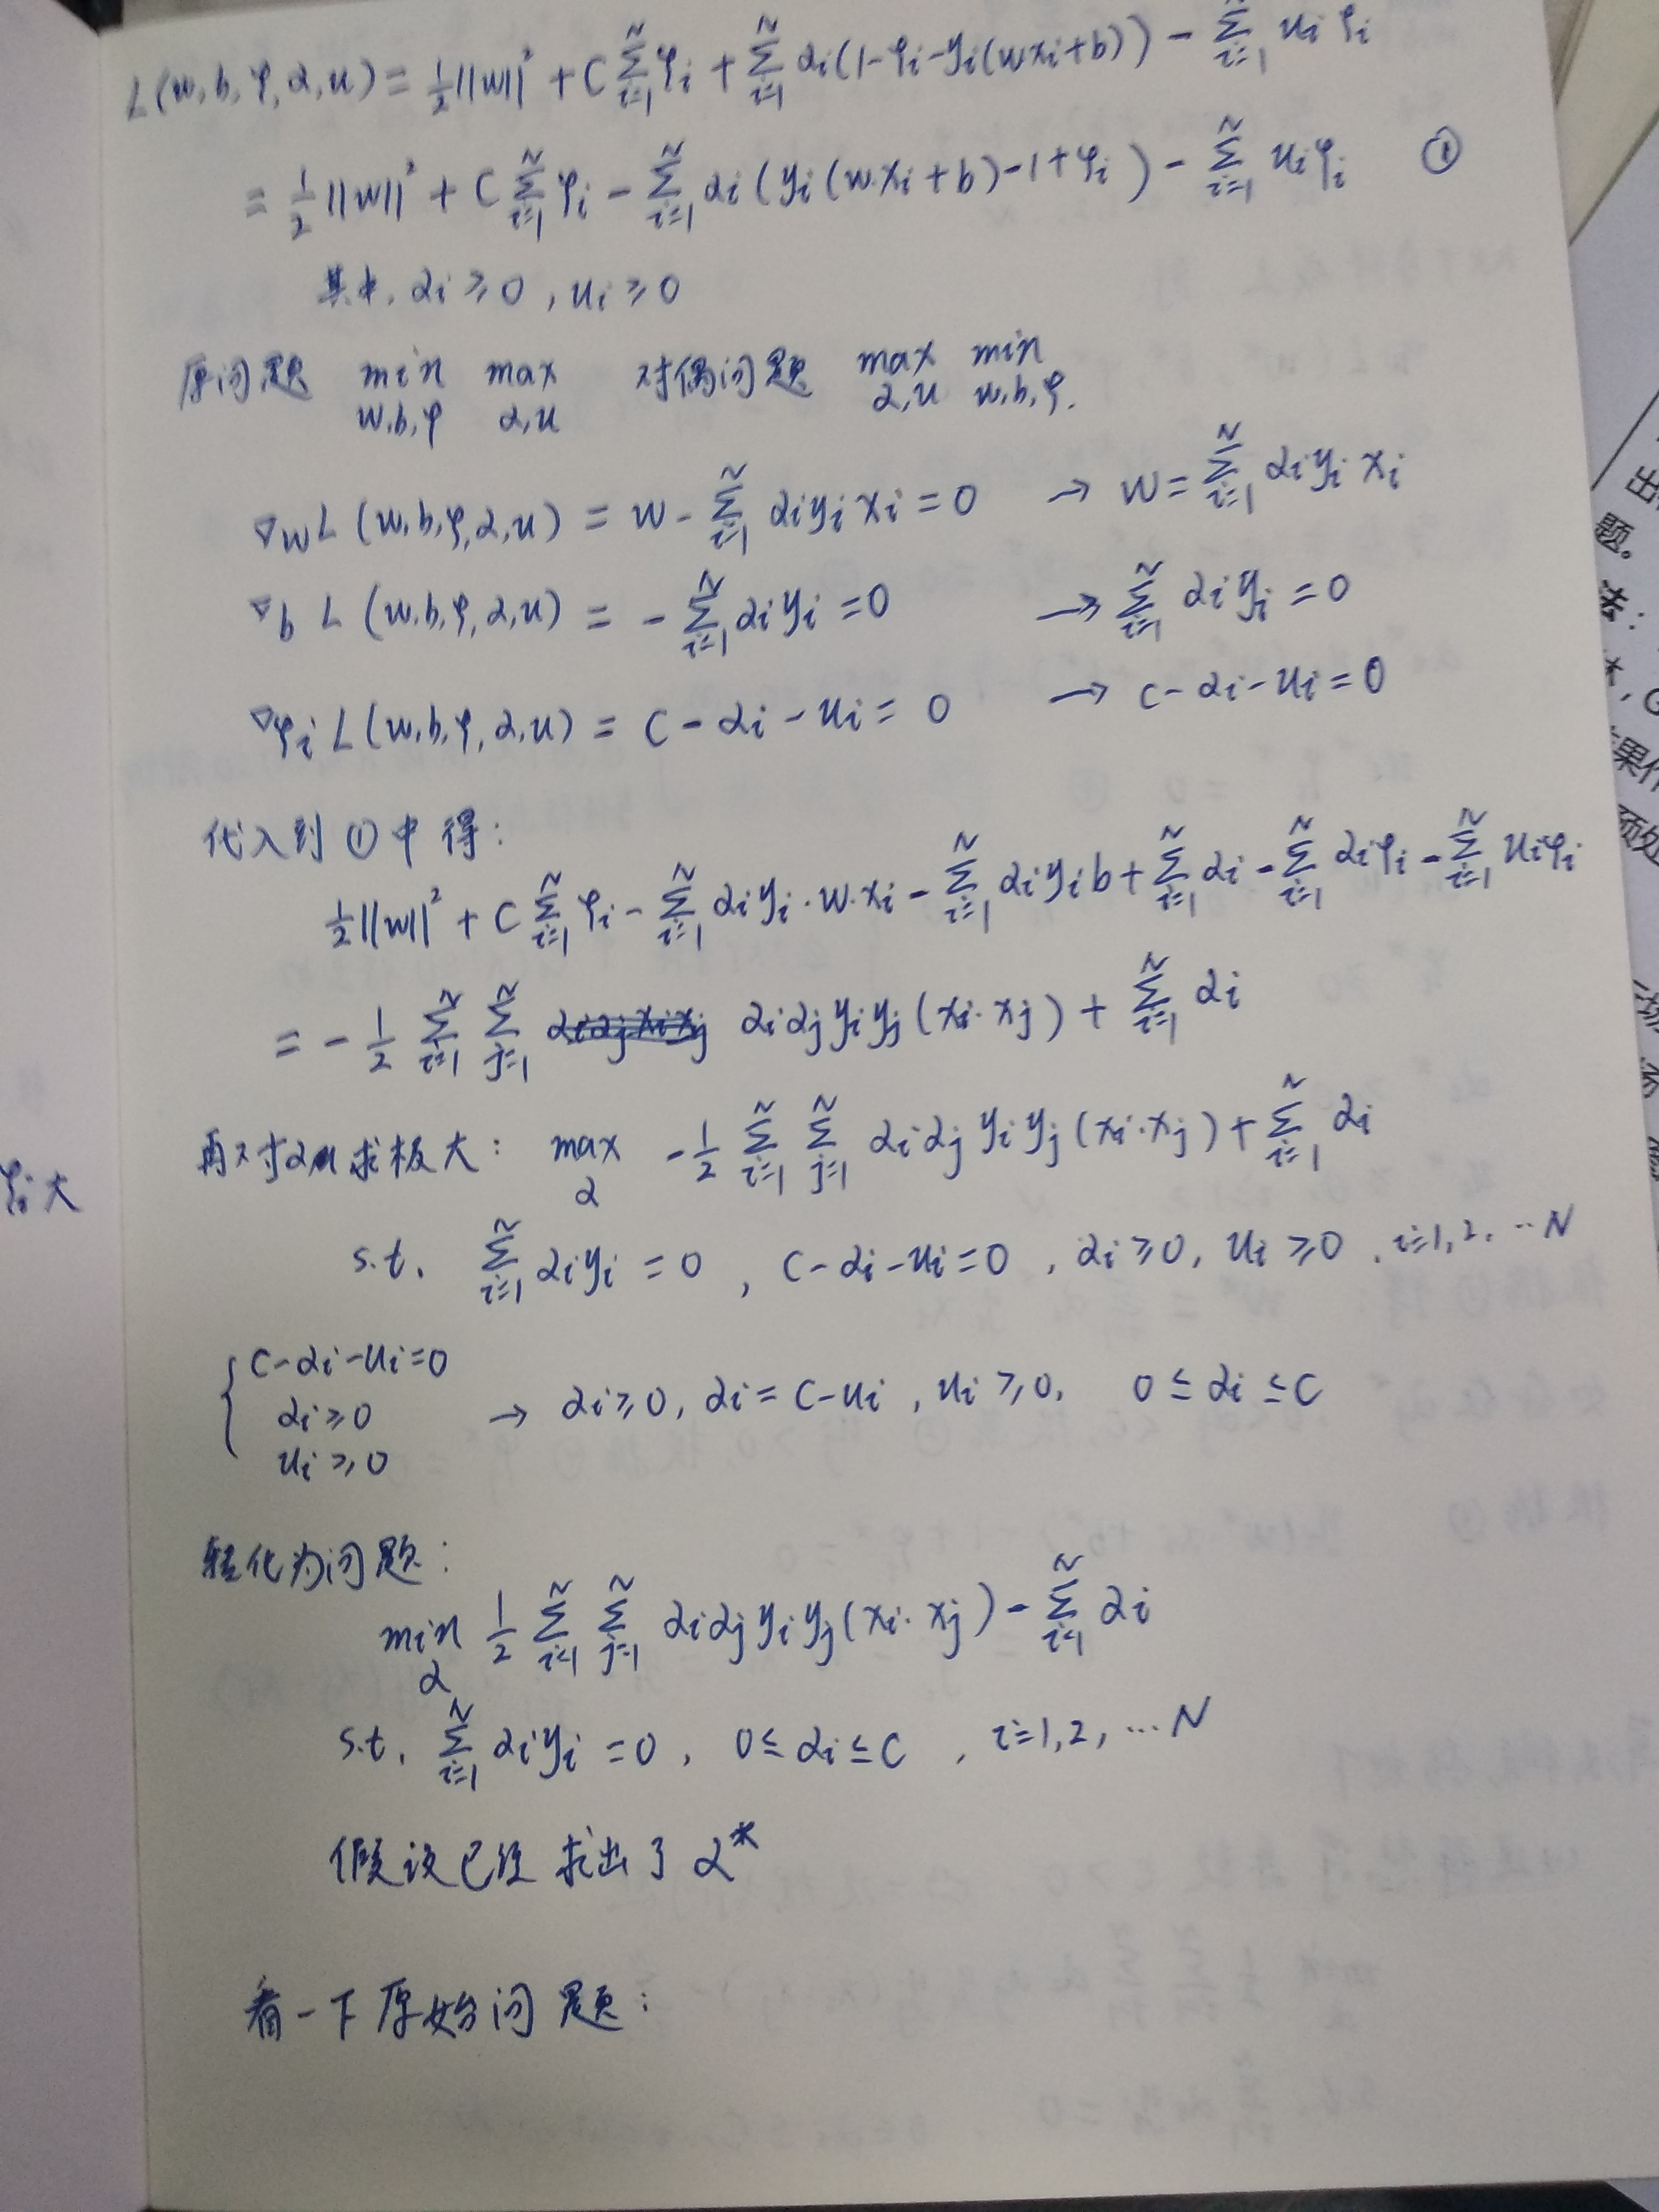 L(w,b,φ,α,u) = ½||w||² + C∑_{i=1}^{N} φi + ∑_{i=1}^{N} αi(1-φi-yi(wxi+b)) - ∑_{i=1}^{N} uiφi
= ½||w||² + C∑_{i=1}^{N} φi - ∑_{i=1}^{N} αi(yi(w·xi+b)-1+φi) - ∑_{i=1}^{N} uiφi ①
其中, αi≥0, ui≥0
原问题 min_{w,b,φ} max_{α,u} 对偶问题 max_{α,u} min_{w,b,φ}.
∇w L(w,b,φ,α,u) = w - ∑_{i=1}^{N} αiyixi = 0 → w = ∑_{i=1}^{N} αiyixi
∇b L(w,b,φ,α,u) = -∑_{i=1}^{N} αiyi = 0 → ∑_{i=1}^{N} αiyi = 0
∇φi L(w,b,φ,α,u) = C-αi-ui = 0 → C-αi-ui = 0
代入到①中得:
½||w||² + C∑_{i=1}^{N} φi - ∑_{i=1}^{N} αiyi·w·xi - ∑_{i=1}^{N} αiyib + ∑_{i=1}^{N} αi - ∑_{i=1}^{N} αiφi - ∑_{i=1}^{N} uiφi
= -½ ∑_{i=1}^{N} ∑_{j=1}^{N} αiαjyiyj(xi·xj) + ∑_{i=1}^{N} αi
再对α求极大: max_α -½ ∑_{i=1}^{N} ∑_{j=1}^{N} αiαjyiyj(xi·xj) + ∑_{i=1}^{N} αi
φi大
s.t. ∑_{i=1}^{N} αiyi = 0, C-αi-ui=0, αi≥0, ui≥0, i=1,2,…N
{ C-αi-ui=0
αi≥0 → αi≥0, αi=C-ui, ui≥0, 0≤αi≤C
ui≥0
转化为问题:
min_α ½ ∑_{i=1}^{N} ∑_{j=1}^{N} αiαjyiyj(xi·xj) - ∑_{i=1}^{N} αi
s.t. ∑_{i=1}^{N} αiyi = 0, 0≤αi≤C, i=1,2,…N
假设已经求出了α*
看一下原始问题:
题。
法: